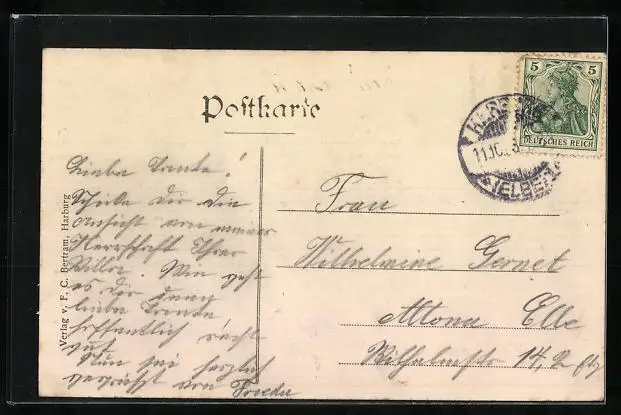 Postkarte
5 5
DEUTSCHES REICH
HARBURG
11.10.
(ELBE)
Verlag v. F. C. Bertram, Harburg
Liebe Tante!
Schicke Dir die
Ansicht von meiner
Herrschaft Ihrer
Villa. Wie geht
es Dir denn
liebe Tante
hoffentlich recht
gut
Nun sei herzlich
gegrüßt von Frieda
Frau
Wilhelmine Gernet
Altona Elbe
Wilhelmstr 14,